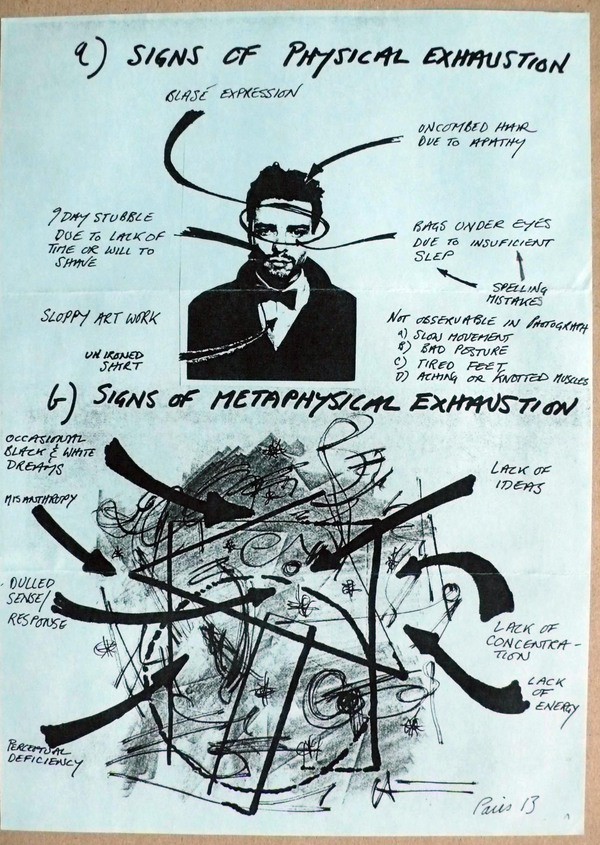 a) SIGNS OF PHYSICAL EXHAUSTION
BLASÉ EXPRESSION
UNCOMBED HAIR
DUE TO APATHY
9 DAY STUBBLE
DUE TO LACK OF
TIME OR WILL TO
SHAVE
BAGS UNDER EYES
DUE TO INSUFICIENT
SLEP
SPELLING
MISTAKES
SLOPPY ART WORK
UNIRONED
SHIRT
NOT OBSERVABLE IN PHOTOGRAPH
a) SLOW MOVEMENT
B) BAD POSTURE
C) TIRED FEET
D) ACHING OR KNOTTED MUSCLES
b) SIGNS OF METAPHYSICAL EXHAUSTION
OCCASIONAL
BLACK & WHITE
DREAMS
MISANTHROPY
DULLED
SENSE/
RESPONSE
PERCEPTUAL
DEFICIENCY
LACK OF
IDEAS
LACK OF
CONCENTRA-
TION
LACK
OF
ENERGY
Paris 13